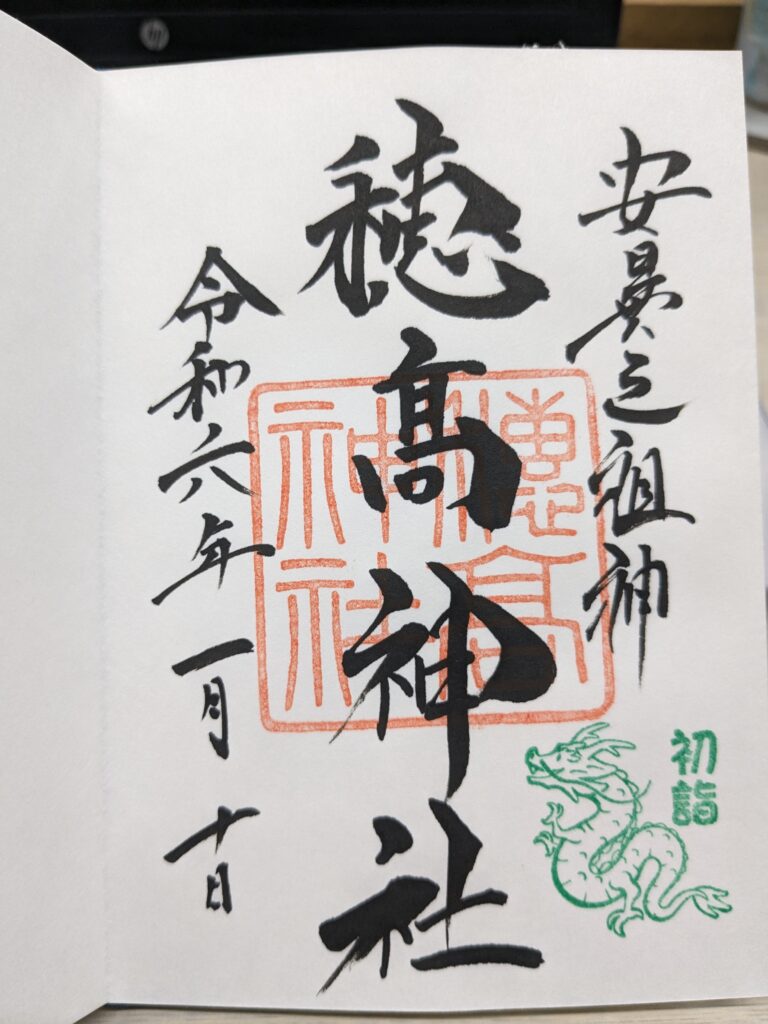 安曇之祖神
穂髙神社
穗高神社
令和六年一月十日
初詣
hp